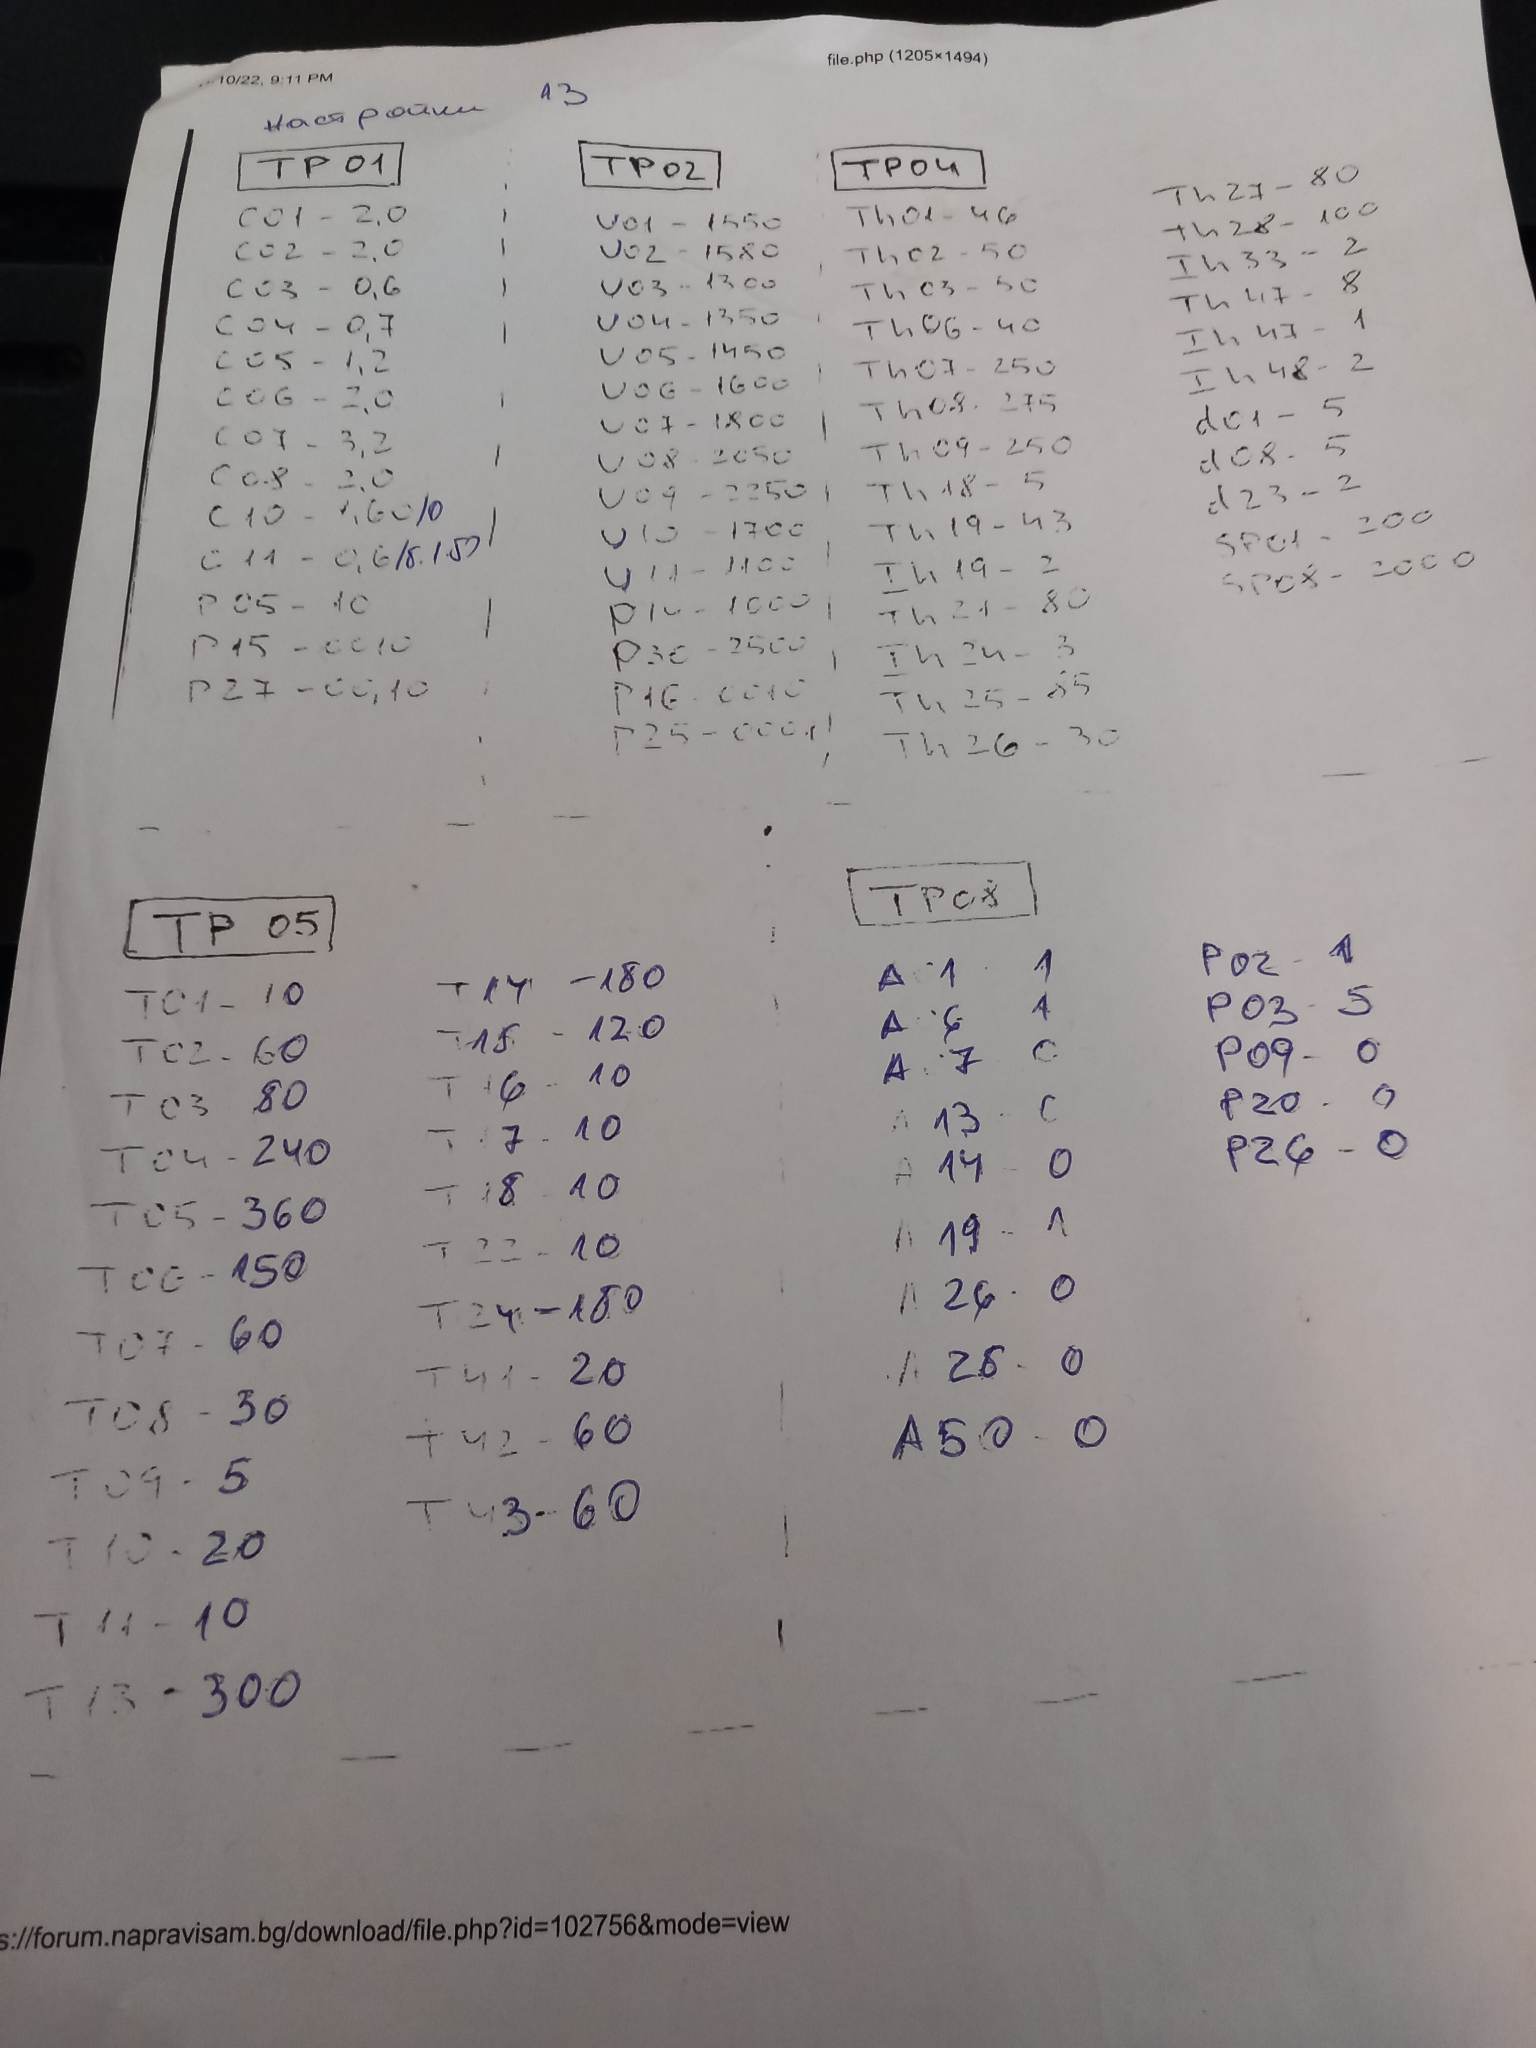 10/22, 9:11 PM
file.php (1205×1494)
Настройки 13
TP 01
C01 - 2,0
C02 - 2,0
C03 - 0,6
C04 - 0,7
C05 - 1,2
C06 - 2,0
C07 - 3,2
C08 - 2,0
C10 - 1,60/0
C11 - 0,6/
P05 - 10
P15 - 0010
P27 - 00,10
TP02
U01 - 1550
U02 - 1580
U03 - 1300
U04 - 1350
U05 - 1450
U06 - 1600
U07 - 1800
U08 - 2050
U09 - 2250
U10 - 1700
U11 - 1100
P14 - 1000
P30 - 2500
P16 - 0010
P25 - 0001
TP04
Th01 - 46
Th02 - 50
Th03 - 50
Th06 - 40
Th07 - 250
Th08 - 275
Th09 - 250
Th18 - 5
Th19 - 43
Ih19 - 2
Th21 - 80
Ih24 - 3
Th25 - 85
Th26 - 30
Th27 - 80
Th28 - 100
Ih33 - 2
Th47 - 8
Ih47 - 1
Ih48 - 2
d01 - 5
d08 - 5
d23 - 2
SP01 - 200
SP08 - 2000
TP 05
T01 - 10
T02 - 60
T03 80
T04 - 240
T05 - 360
T06 - 150
T07 - 60
T08 - 30
T09 - 5
T10 - 20
T11 - 10
T13 - 300
T14 - 180
T15 - 120
T16 - 10
T17 - 10
T18 - 10
T22 - 10
T24 - 180
T41 - 20
T42 - 60
T43 - 60
TP08
A 1 1
A 6 1
A 7 0
A 13 - 0
A 14 - 0
A 19 - 1
A 26 - 0
A 28 - 0
A50 - 0
P02 - 1
P03 - 5
P09 - 0
P20 - 0
P26 - 0
s://forum.napravisam.bg/download/file.php?id=102756&mode=view